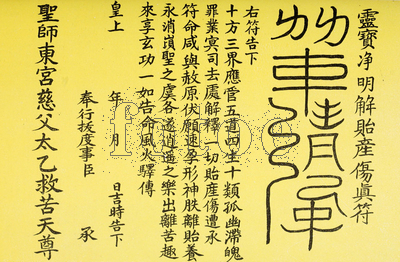 靈寶净明解貽産傷眞符
右符告下
十方三界應管五道四生十類孤幽滯魄
罪業冥司去處解釋一切貽産傷遭承
符命咸與赦原伏願速孕形神脱離貽養
永消之虞各遂逍遥之樂出離苦趣
來享玄功一如告命風火驛傳
皇上 年 月 日吉時告下
奉行拔度事臣 承
聖師東宮慈父太乙救苦天尊